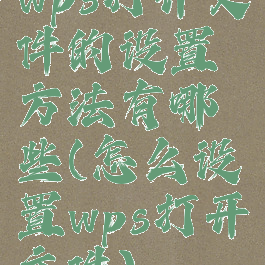 wps打开文
件的设置
方法有哪
些(怎么设
置wps打开
文件)